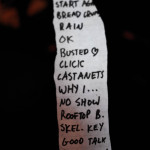 START AGAIN
BREAD CRUMB
RAIN
OK
BUSTED ♡
CLICIC
CASTANETS
WHY I...
NO SHOW
ROOFTOP B.
SKEL. KEY
GOOD TALK